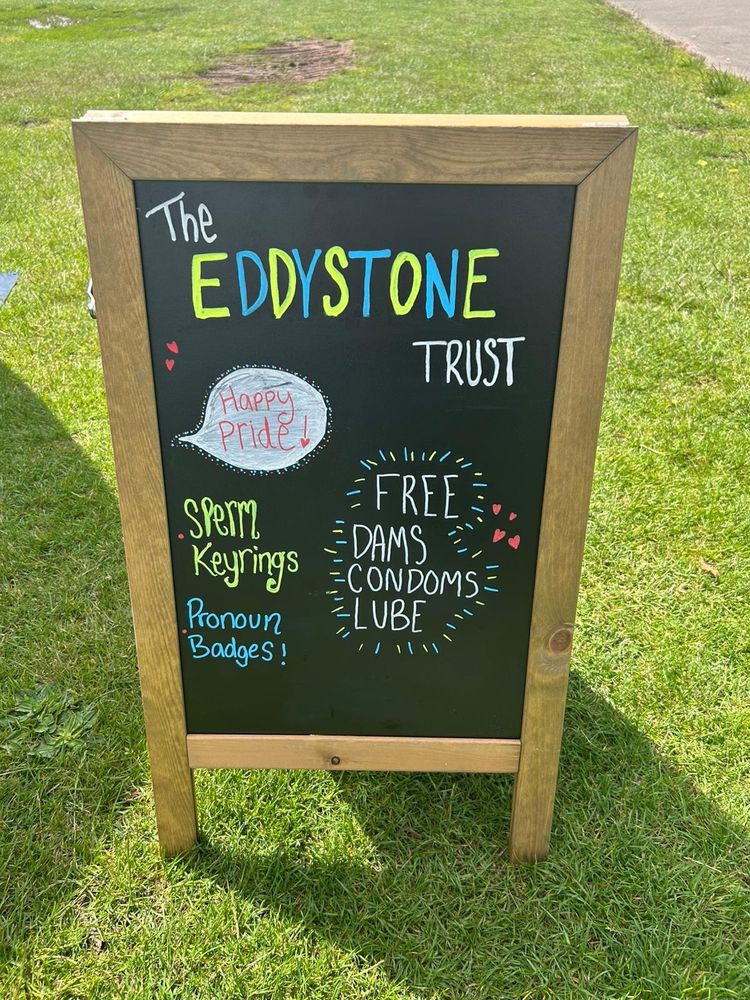 The
EDDYSTONE
TRUST
Happy
Pride!
Sperm
Keyrings
Pronoun
Badges!
FREE
DAMS
CONDOMS
LUBE